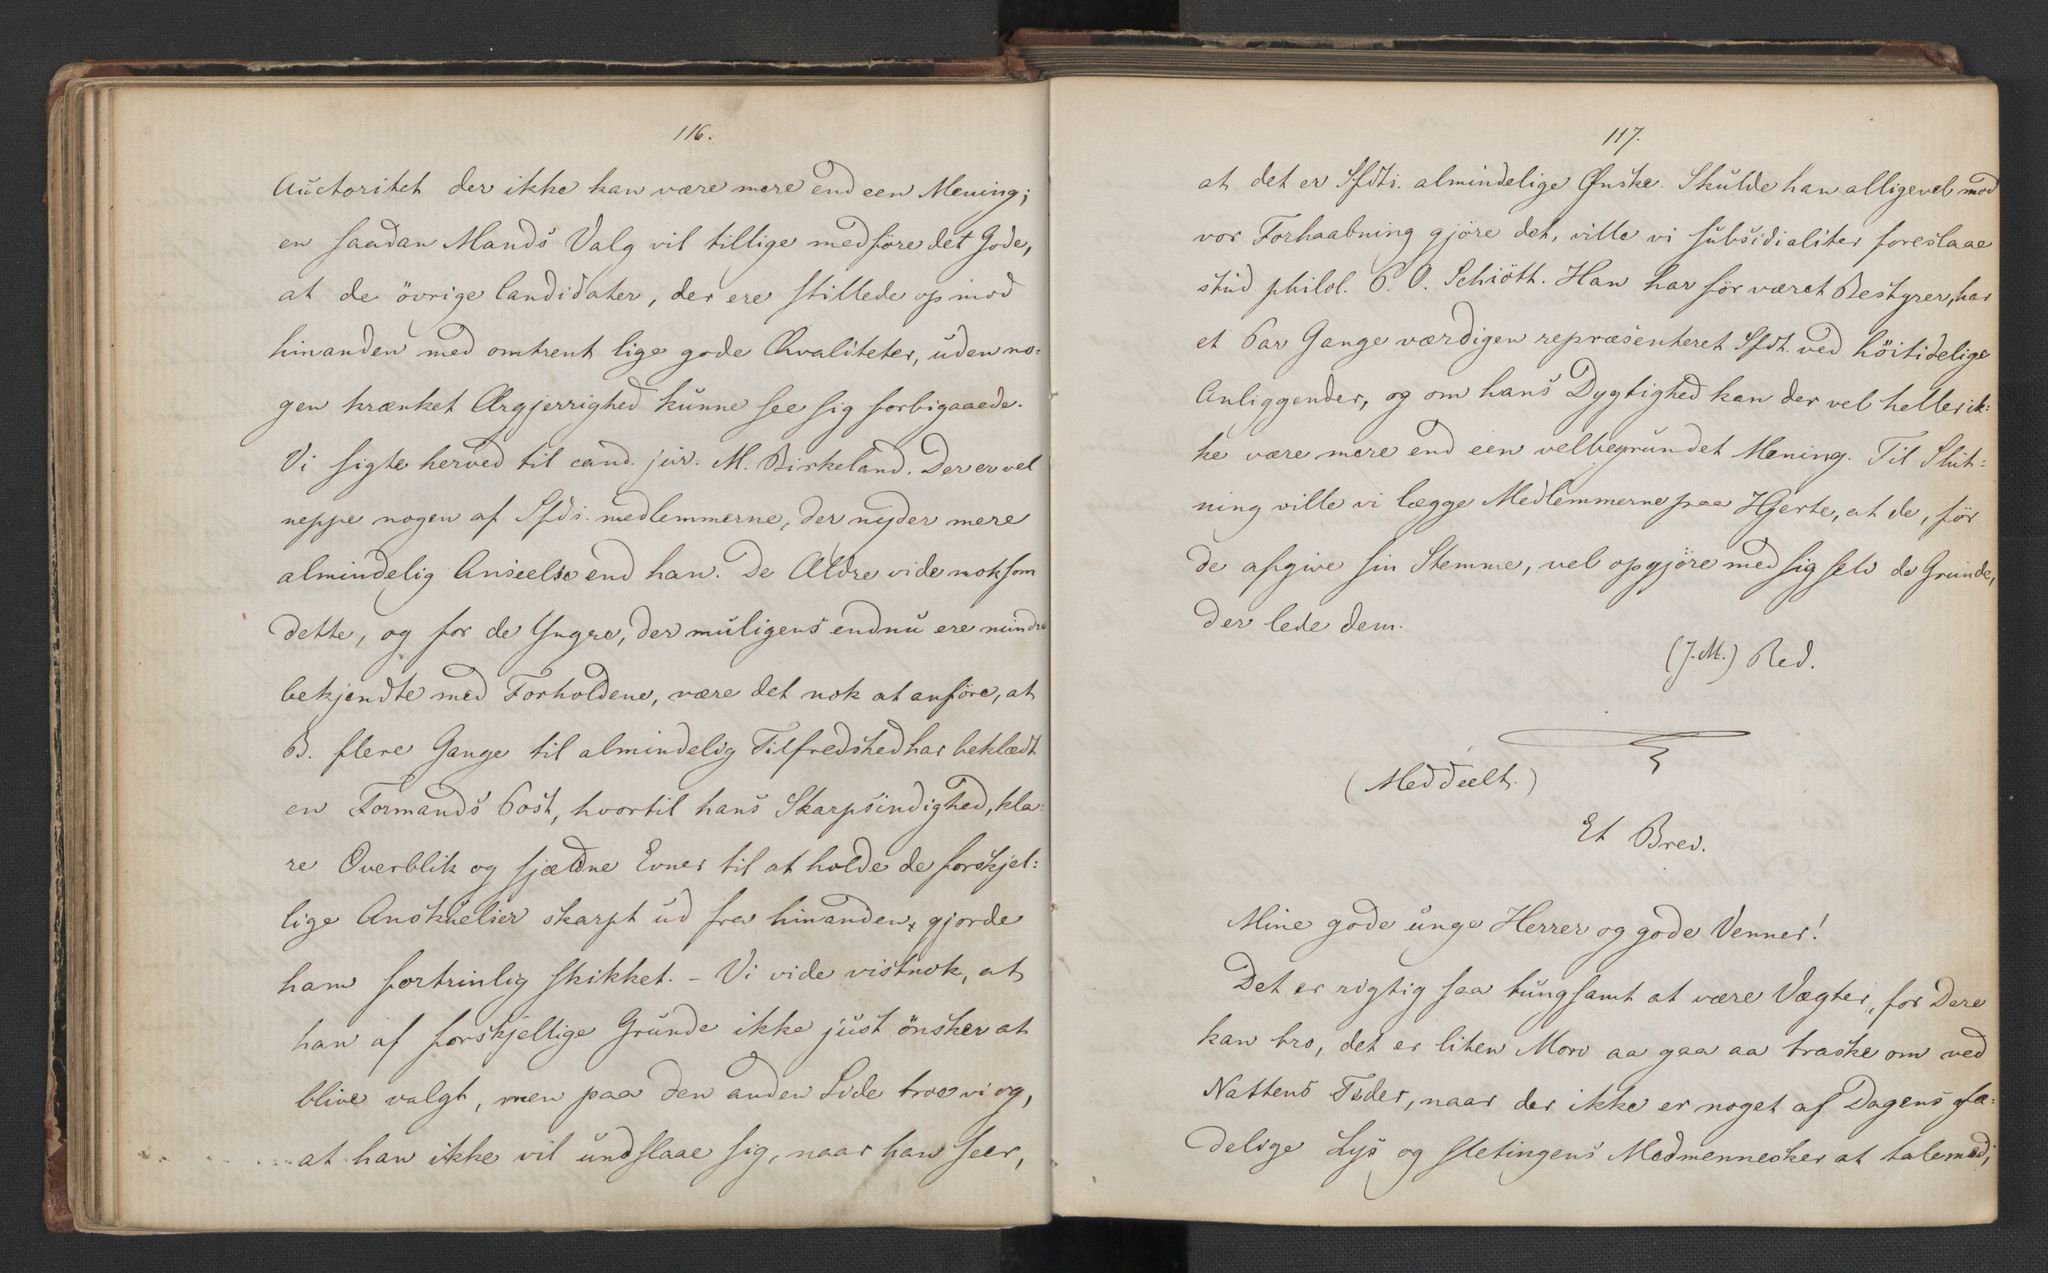 116.
Auctoritet der ikke kan være mere end een Mening;
en saadan Mands Valg vil tillige medføre det Gode,
at de övrige Candidater, der ere stillede op mod
hinanden med omtrent lige gode Qvaliteter, uden no-
gen krænket Ærgjerrighed kunne see sig forbigaaede.
Vi sigte herved til cand. jur. M. Birkeland. Der er vel
neppe nogen af Sfdts. medlemmerne, der nyder mere
almindelig Anseelse end han. De Ældre vide noksom
dette, og for de Yngre, der muligens endnu ere mindre
bekjendte med Forholdene, være det nok at anföre, at
B. flere Gange til almindelig Tilfredshed har beklædt
en Formands Post, hvortil hans Skarpsindighed, kla-
re Overblik og sjældne Evner til at holde de forskjel-
lige Anskuelser skarpt ud fra hinanden, gjorde
ham fortrinlig skikket. – Vi vide vistnok, at
han af forskjellige Grunde ikke just önsker at
blive valgt, men paa den anden Side troe vi og,
at han ikke vil undslaae sig, naar han seer,
117.
at det er Sfdts. almindelige Ønske. Skulde han alligevel mod
vor Forhaabning gjöre det, ville vi subsidialiter foreslaae
stud. philol. P. O. Schiött. Han har för været Bestyrer, har
et Par Gange værdigen repræsenteret Sfdt. ved höitidelige
Anliggender, og om hans Dygtighed kan der vel heller ik-
ke være mere end een velbegrundet Mening. Til Slut-
ning ville vi lægge Medlemmerne paa Hjerte, at de, för
de afgive sin Stemme, vel opgjöre med sig selv de Grunde,
der lede dem.
(J. M.) Red.
(Meddeelt.)
Et Brev.
Mine gode unge Herrer og gode Venner!
Det er rigtig saa tungsamt at være Vægter, for Dere
kan tro, det er liten Moro aa gaa aa traske om ved
Nattens Tider, naar der ikke er noget af Dagens glæ-
delige Lys og sletingens Medmennesker at tale med;